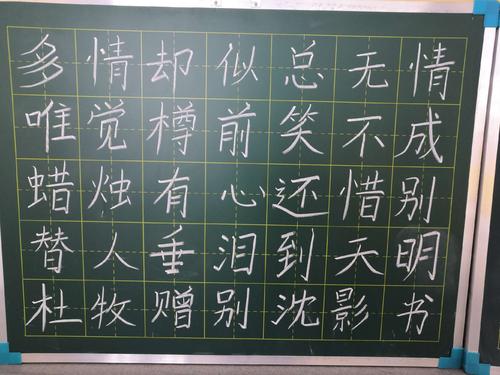 多情却似总无情
唯觉樽前笑不成
蜡烛有心还惜别
替人垂泪到天明
杜牧赠别沈影书